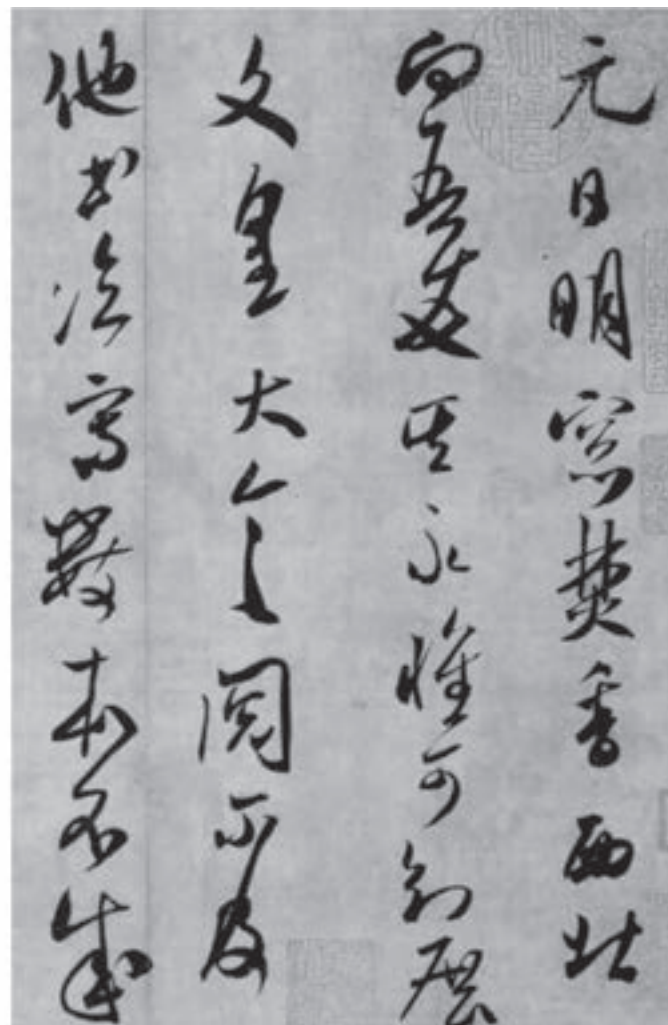 元日明窓焚香西北
向吾友其永懷可知展
文皇大令閱不及
他書臨寫數本不成